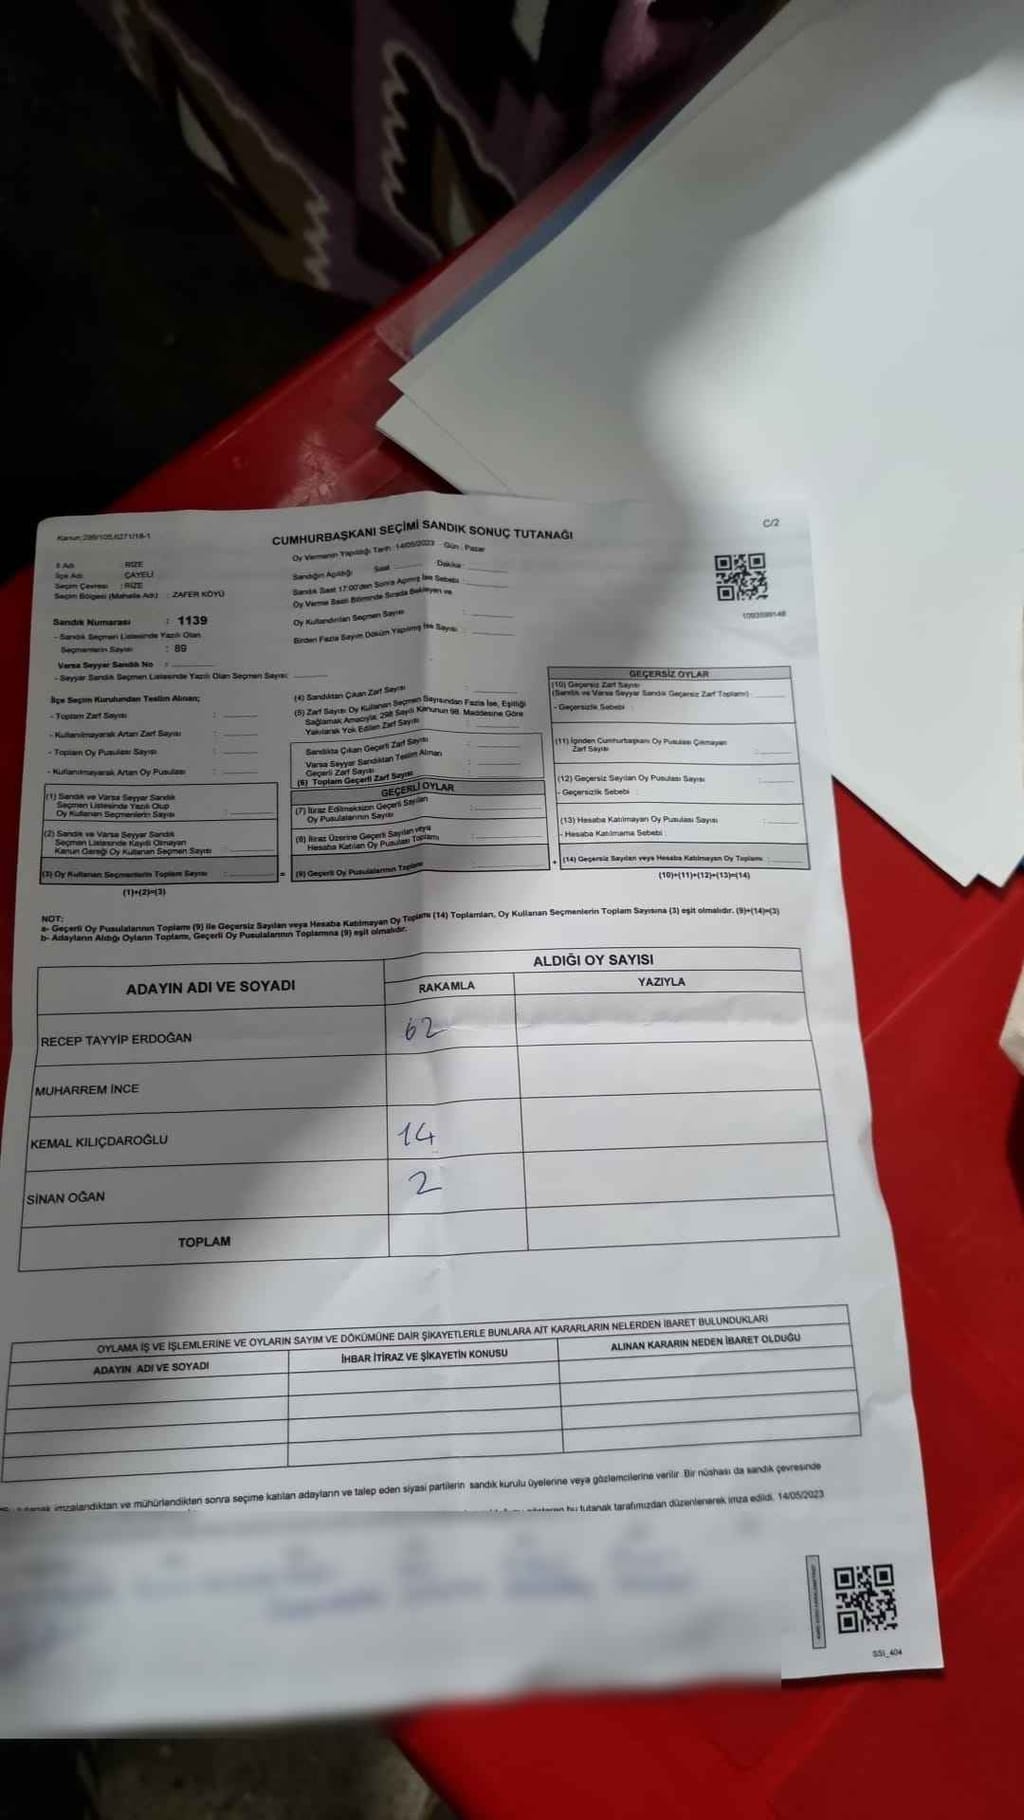 Kanun: 298/105,6271/18-1
C/2
CUMHURBAŞKANI SEÇİMİ SANDIK SONUÇ TUTANAĞI
Oy Vermenin Yapıldığı Tarih : 14/05/2023 Gün : Pazar
İl Adı : RİZE
İlçe Adı : ÇAYELİ
Seçim Çevresi : RİZE
Seçim Bölgesi (Mahalle Adı) : ZAFER KÖYÜ
Sandık Numarası : 1139
- Sandık Seçmen Listesinde Yazılı Olan
Seçmenlerin Sayısı : 89
Varsa Seyyar Sandık No :
- Seyyar Sandık Seçmen Listesinde Yazılı Olan Seçmen Sayısı:
Sandığın Açıldığı Saat Dakika :
Sandık Saat 17:00'den Sonra Açılmış İse Sebebi :
Oy Verme Saati Bitiminde Sırada Bekleyen ve
Oy Kullandırılan Seçmen Sayısı :
Birden Fazla Sayım Döküm Yapılmış İse Sayısı :
İlçe Seçim Kurulundan Teslim Alınan;
- Toplam Zarf Sayısı :
- Kullanılmayarak Artan Zarf Sayısı :
- Toplam Oy Pusulası Sayısı :
- Kullanılmayarak Artan Oy Pusulası :
(1) Sandık ve Varsa Seyyar Sandık
Seçmen Listesinde Yazılı Olup
Oy Kullanan Seçmenlerin Sayısı :
(2) Sandık ve Varsa Seyyar Sandık
Seçmen Listesinde Kayıtlı Olmayan
Kanun Gereği Oy Kullanan Seçmen Sayısı :
(3) Oy Kullanan Seçmenlerin Toplam Sayısı :
(1)+(2)=(3)
(4) Sandıktan Çıkan Zarf Sayısı :
(5) Zarf Sayısı Oy Kullanan Seçmen Sayısından Fazla İse, Eşitliği
Sağlamak Amacıyla; 298 Sayılı Kanunun 98. Maddesine Göre
Yakılarak Yok Edilen Zarf Sayısı :
Sandıkta Çıkan Geçerli Zarf Sayısı :
Varsa Seyyar Sandıktan Teslim Alınan
Geçerli Zarf Sayısı :
(6) Toplam Geçerli Zarf Sayısı :
GEÇERLİ OYLAR
(7) İtiraz Edilmeksizin Geçerli Sayılan
Oy Pusulalarının Sayısı :
(8) İtiraz Üzerine Geçerli Sayılan veya
Hesaba Katılan Oy Pusulası Toplamı :
= (9) Geçerli Oy Pusulalarının Toplamı
GEÇERSİZ OYLAR
(10) Geçersiz Zarf Sayısı
(Sandık ve Varsa Seyyar Sandık Geçersiz Zarf Toplamı) :
- Geçersizlik Sebebi :
(11) İçinden Cumhurbaşkanı Oy Pusulası Çıkmayan
Zarf Sayısı :
(12) Geçersiz Sayılan Oy Pusulası Sayısı :
- Geçersizlik Sebebi :
(13) Hesaba Katılmayan Oy Pusulası Sayısı :
- Hesaba Katılmama Sebebi :
+ (14) Geçersiz Sayılan veya Hesaba Katılmayan Oy Toplamı :
(10)+(11)+(12)+(13)=(14)
NOT:
a- Geçerli Oy Pusulalarının Toplamı (9) ile Geçersiz Sayılan veya Hesaba Katılmayan Oy Toplamı (14) Toplamları, Oy Kullanan Seçmenlerin Toplam Sayısına (3) eşit olmalıdır. (9)+(14)=(3)
b- Adayların Aldığı Oyların Toplamı, Geçerli Oy Pusulalarının Toplamına (9) eşit olmalıdır.
ADAYIN ADI VE SOYADI
ALDIĞI OY SAYISI
RAKAMLA YAZIYLA
RECEP TAYYİP ERDOĞAN 62
MUHARREM İNCE
KEMAL KILIÇDAROĞLU 14
SİNAN OĞAN 2
TOPLAM
OYLAMA İŞ VE İŞLEMLERİNE VE OYLARIN SAYIM VE DÖKÜMÜNE DAİR ŞİKAYETLERLE BUNLARA AİT KARARLARIN NELERDEN İBARET BULUNDUKLARI
ADAYIN ADI VE SOYADI İHBAR İTİRAZ VE ŞİKAYETİN KONUSU ALINAN KARARIN NEDEN İBARET OLDUĞU
tutanak imzalandıktan ve mühürlendikten sonra seçime katılan adayların ve talep eden siyasi partilerin sandık kurulu üyelerine veya gözlemcilerine verilir. Bir nüshası da sandık çevresinde
bu tutanak tarafımızdan düzenlenerek imza edildi. 14/05/2023
SSI_404